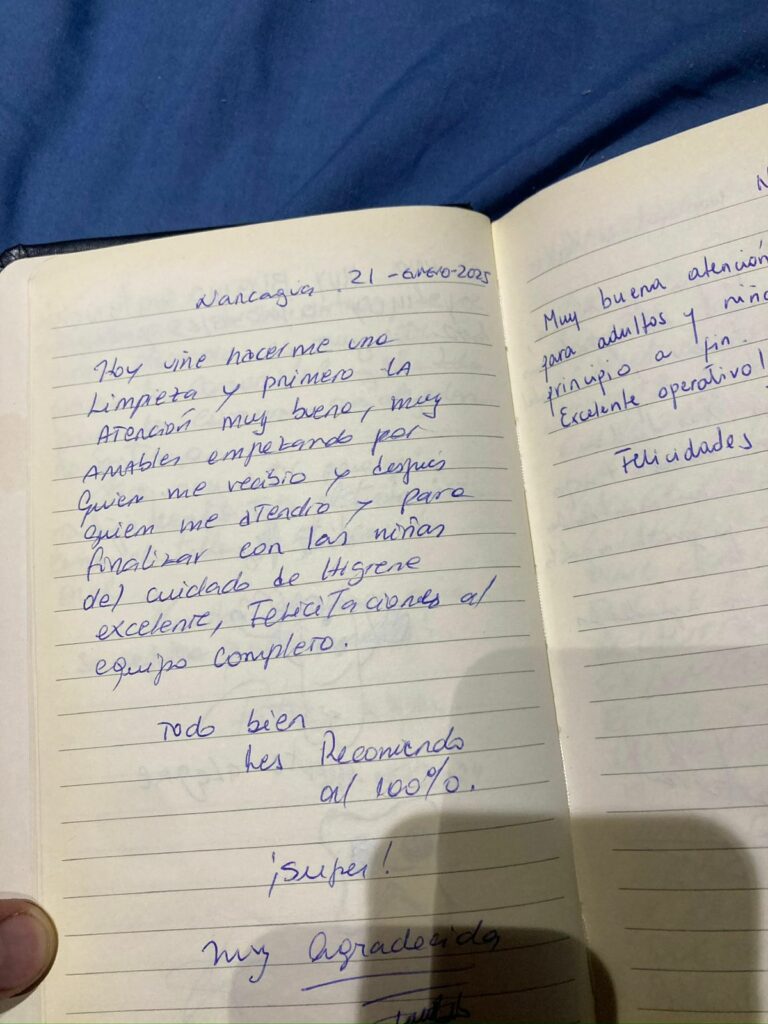 Nancagua. 21 - enero - 2025
Hoy vine hacerme una
Limpieza y primero LA
Atención muy buena, muy
AMAbles empezando por
Quien me recibio y después
quien me atendio y para
finalizar con las niñas
del cuidado de Higiene
excelente, Felicitaciones al
equipo completo.
Todo bien
Les Recomiendo
al 100%.
¡Super!
Muy Agradecida
Muy buena atención
para adultos y niño
principio a fin.
Excelente operativo!
Felicidades